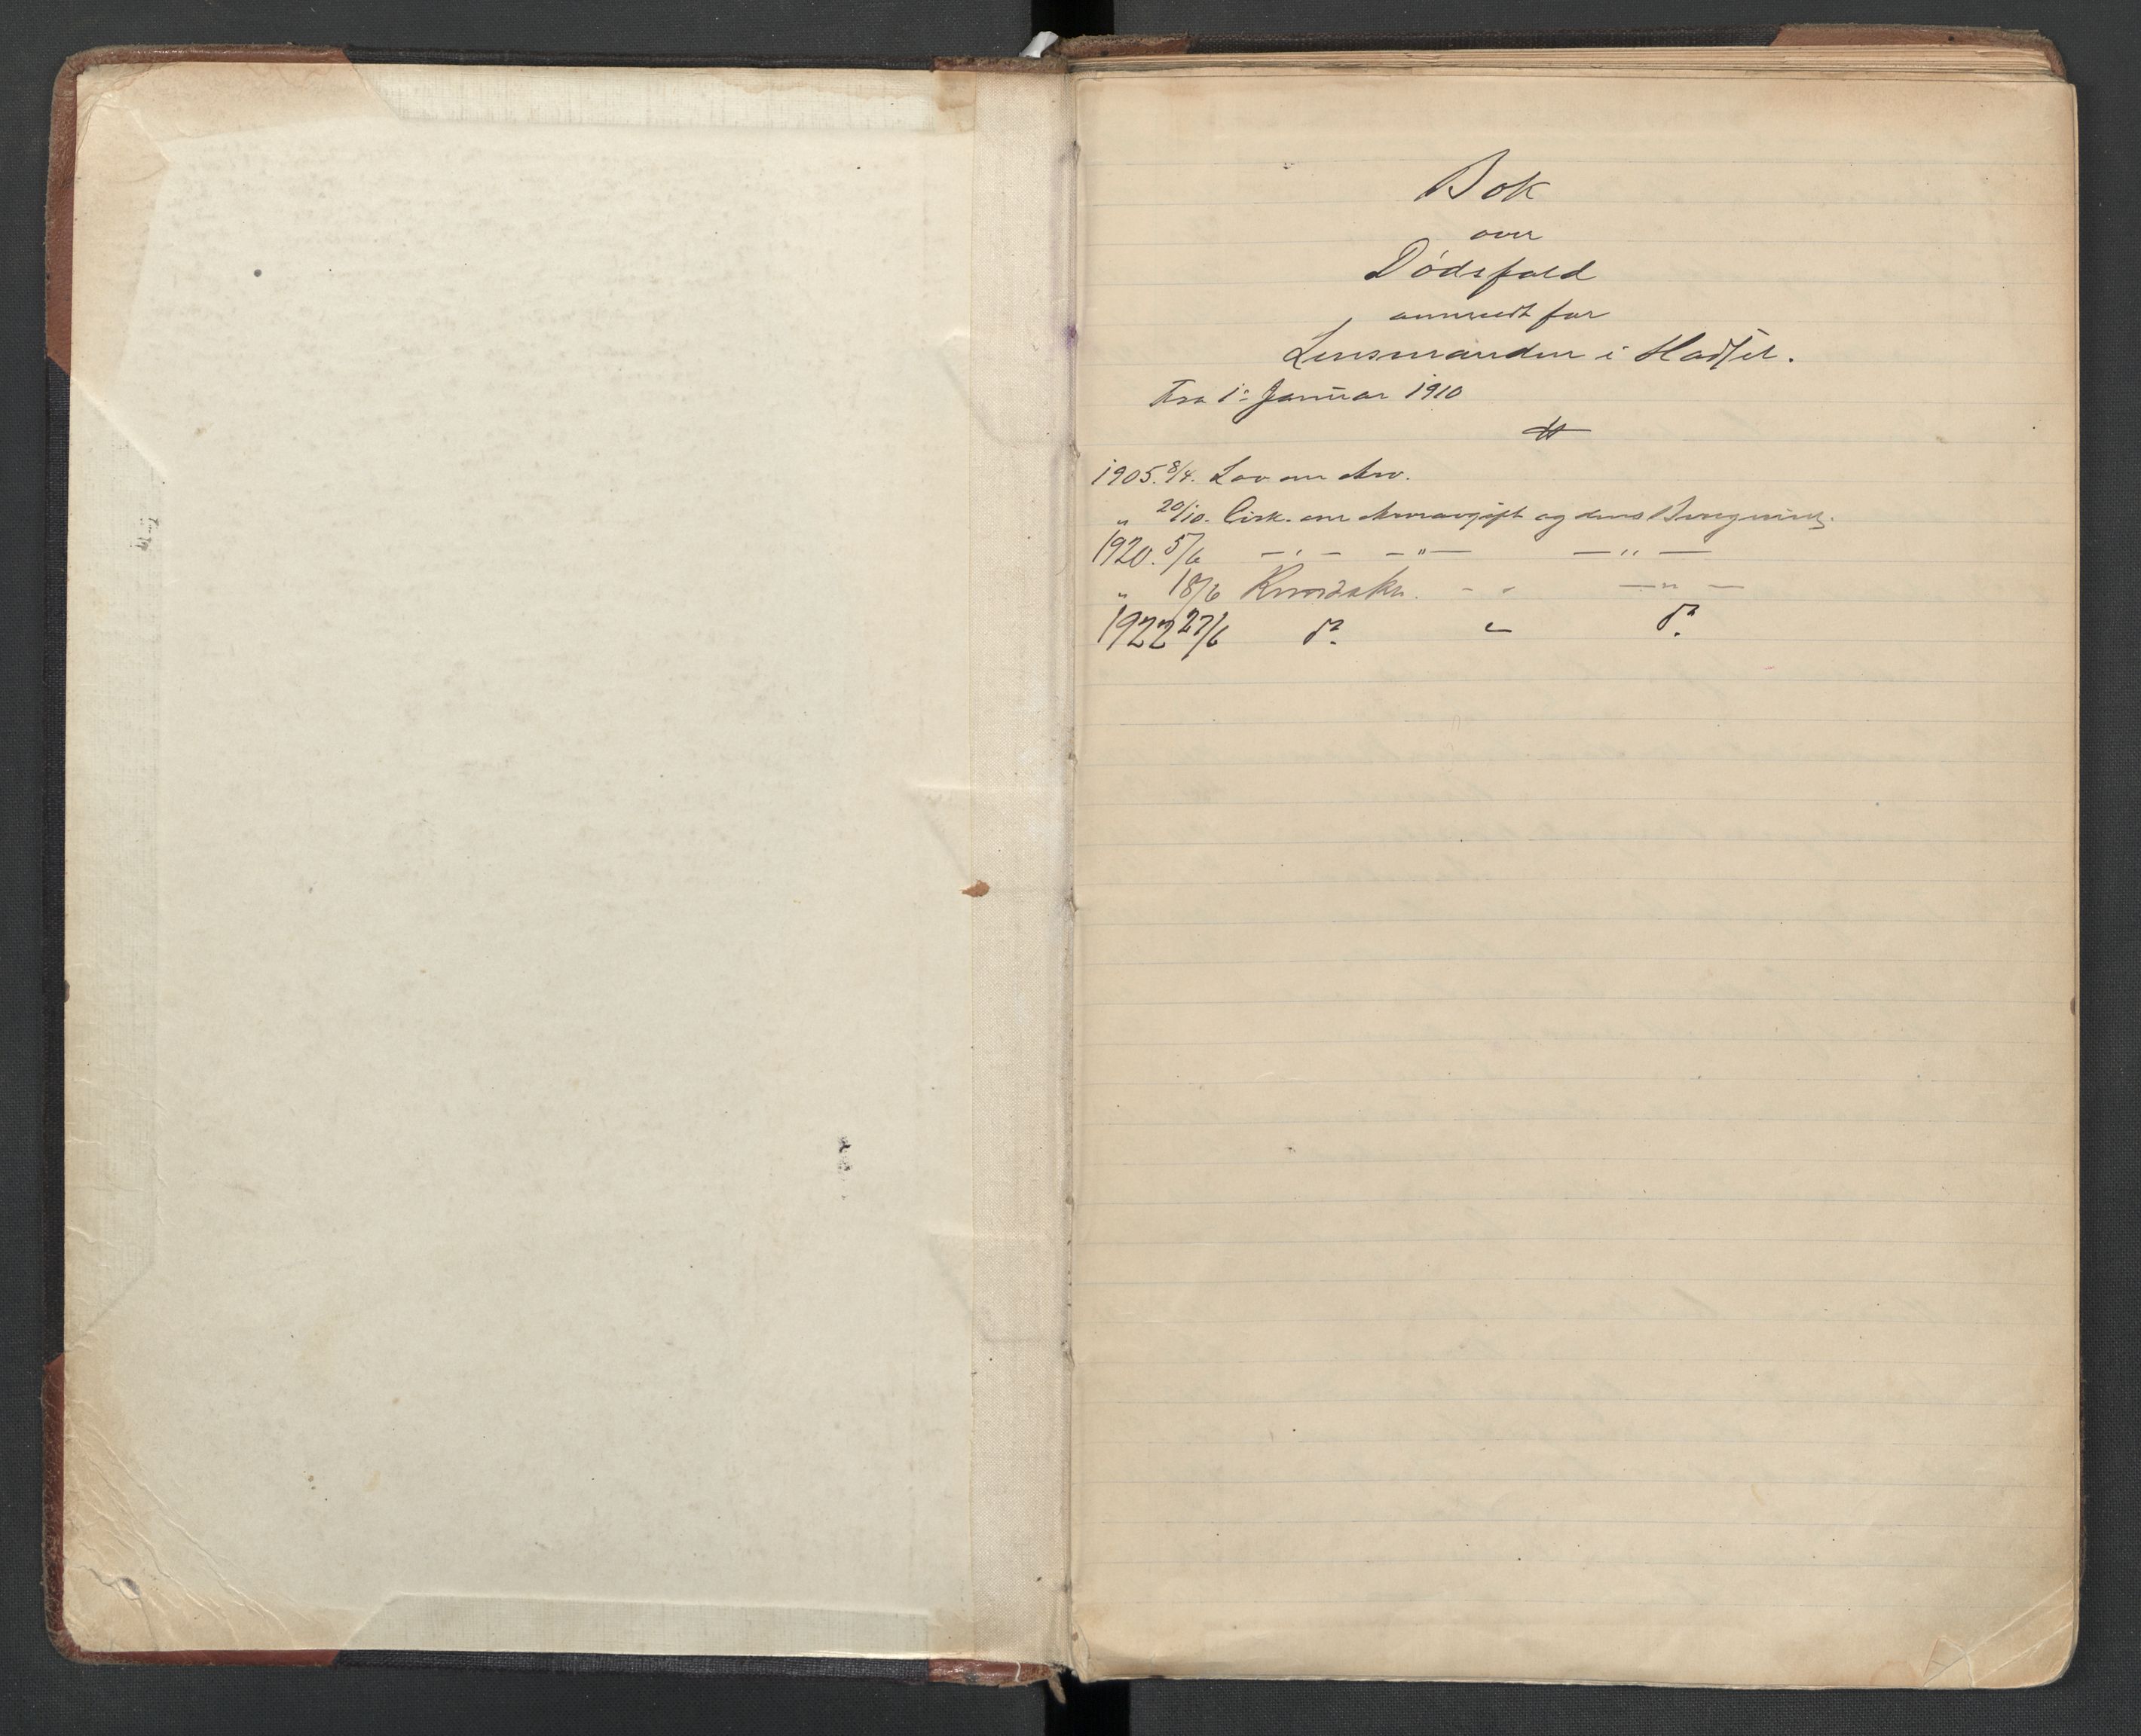 Bok
over
Dødsfald
anmeldt for
Lensmanden i Hadsel.
Fra 1ste Januar 1910
1905. 8/4. Lov om Arv.
" 20/10. Cirk. om Arveavgift og dens Beregning.
1920. 5/6 — " — — " — — " —
" 18/6 — " —
1922 27/6 do. " do.